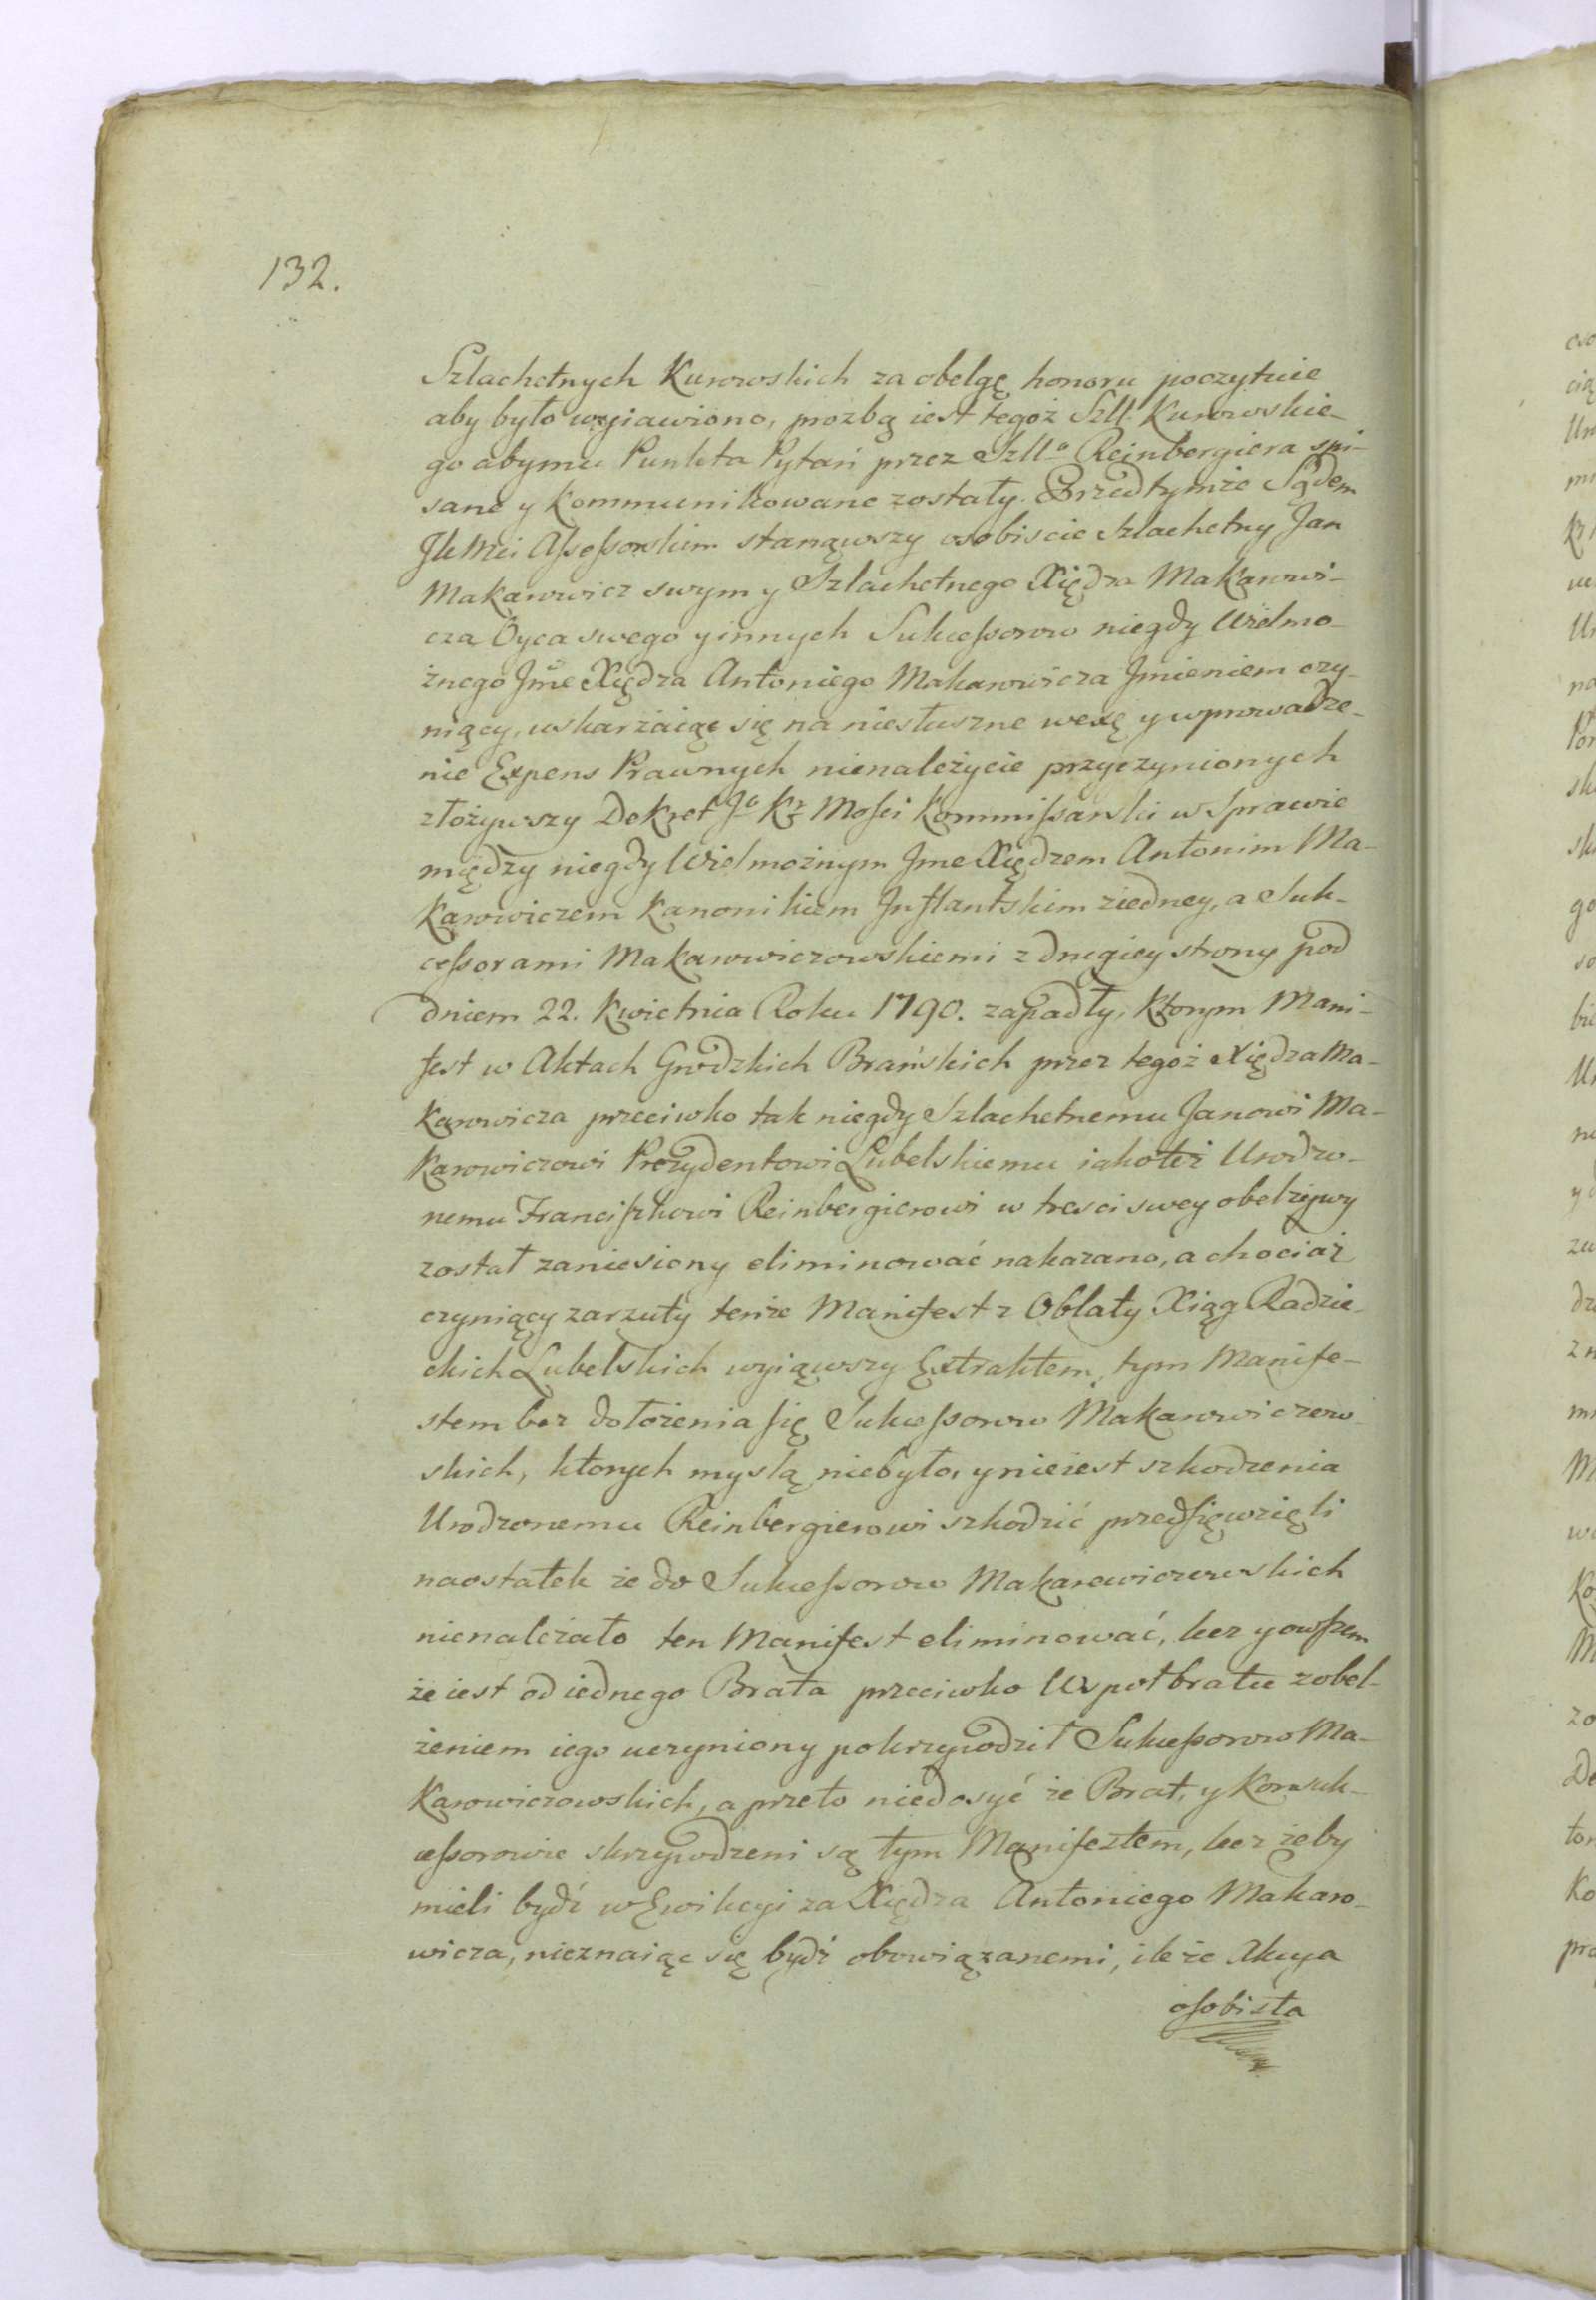 132.
Szlachetnych Kurowskich za obelgę honoru poczytuie
aby było wyiawiono, prozbą iest tegoż Szll: Kurowskie-
go abymu Punkta Pytań przez Szllo Reinbergiera spi-
sane y kommunikowane zostały. Przed tymże Sądem
JKMci Assessorskim stanąwszy osobiscie Szlachetny Jan
Makarowicz swym y Szlachetnego Xiędza Makarowi-
cza Oyca swego y innych Sukcessorow niegdy Wielmo-
żnego Jme Xiędza Antoniego Makarowicza Jmieniem czy-
niący, uskarżaiąc się na niesłuszne wexę y wprowadze-
nie Expens Prawnych nienależycie przyczynionych
złożywszy Dekret Jo Kr Mosci Kommissarski w Sprawie
między niegdy Wielmożnym Jme Xiędzem Antonim Ma-
karowiczem Kanonikiem Inflantskim ziedney, a Suk-
cessorami Makarowiczowskiemi z drugiey strony pod
dniem 22. Kwietnia Roku 1790. zapadły, ktorym Mani-
fest w Aktach Grodzkich Brańskich przez tegoż Xiędza Ma-
karowicza przeciwko tak niegdy Szlachetnemu Janowi Ma-
karowiczowi Prezydentowi Lubelskiemu iakoteż Urodzo-
nemu Franciszkowi Reinbergierowi w tresci swey obelżywy
został zaniesiony eliminować nakazano, a chociaż
czyniący zarzuty tenże Manifest z Oblaty Xiąg Radzie-
ckich Lubelskich wyiąwszy Extraktem, tym Manife-
stem bez dołożenia się Sukcessorow Makarowiczow-
skich, ktorych myslą niebyło, y nieiest szkodzenia
Urodzonemu Reinbergierowi szkodzić przedsięwzięli
naostatek że do Sukcessorow Makarewiczowskich
nienależało ten Manifest eliminować, lecz y owszem
że iest od iednego Brata przeciwko Wspołbratu z obel-
żeniem iego uczyniony pokrzywdził Sukcessorow Ma-
karowiczowskich, a przeto niedosyć że Brat, y Konsuk-
cessorowie skrzywdzeni są tym Manifeztem, lecz żeby
mieli bydź w Ewikcyi za Xiędza Antoniego Makaro-
wicza, nieznaiąc się bydź obowiązanemi, ile że Akcya
osobista